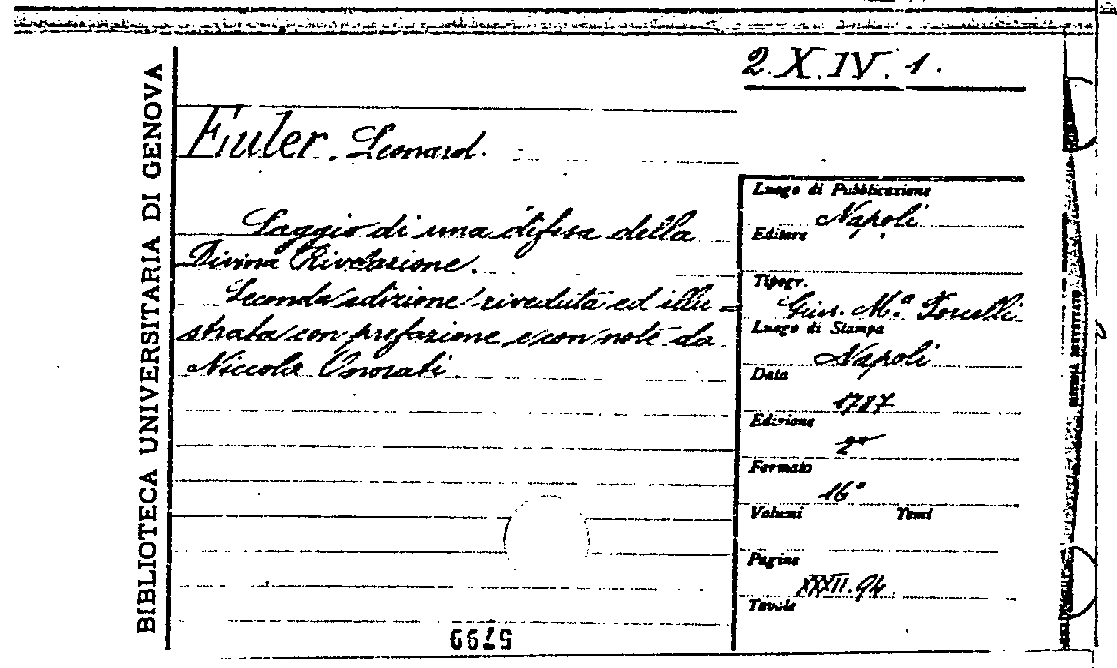 2.X.IV.1.
BIBLIOTECA UNIVERSITARIA DI GENOVA
Euler. Leonard.
Saggio di una difesa della
Divina Rivelazione.
Seconda edizione riveduta ed illu=
strata con prefazione e con note da
Niccola Onorati
Luogo di Pubblicazione
Napoli
Editore
Tipogr.
Gius. M.ª Porcelli
Luogo di Stampa
Napoli
Data
1787
Edizione
2ª
Formato
16°
Volumi Tomi
Pagine
XXXII.94
Tavole
5799